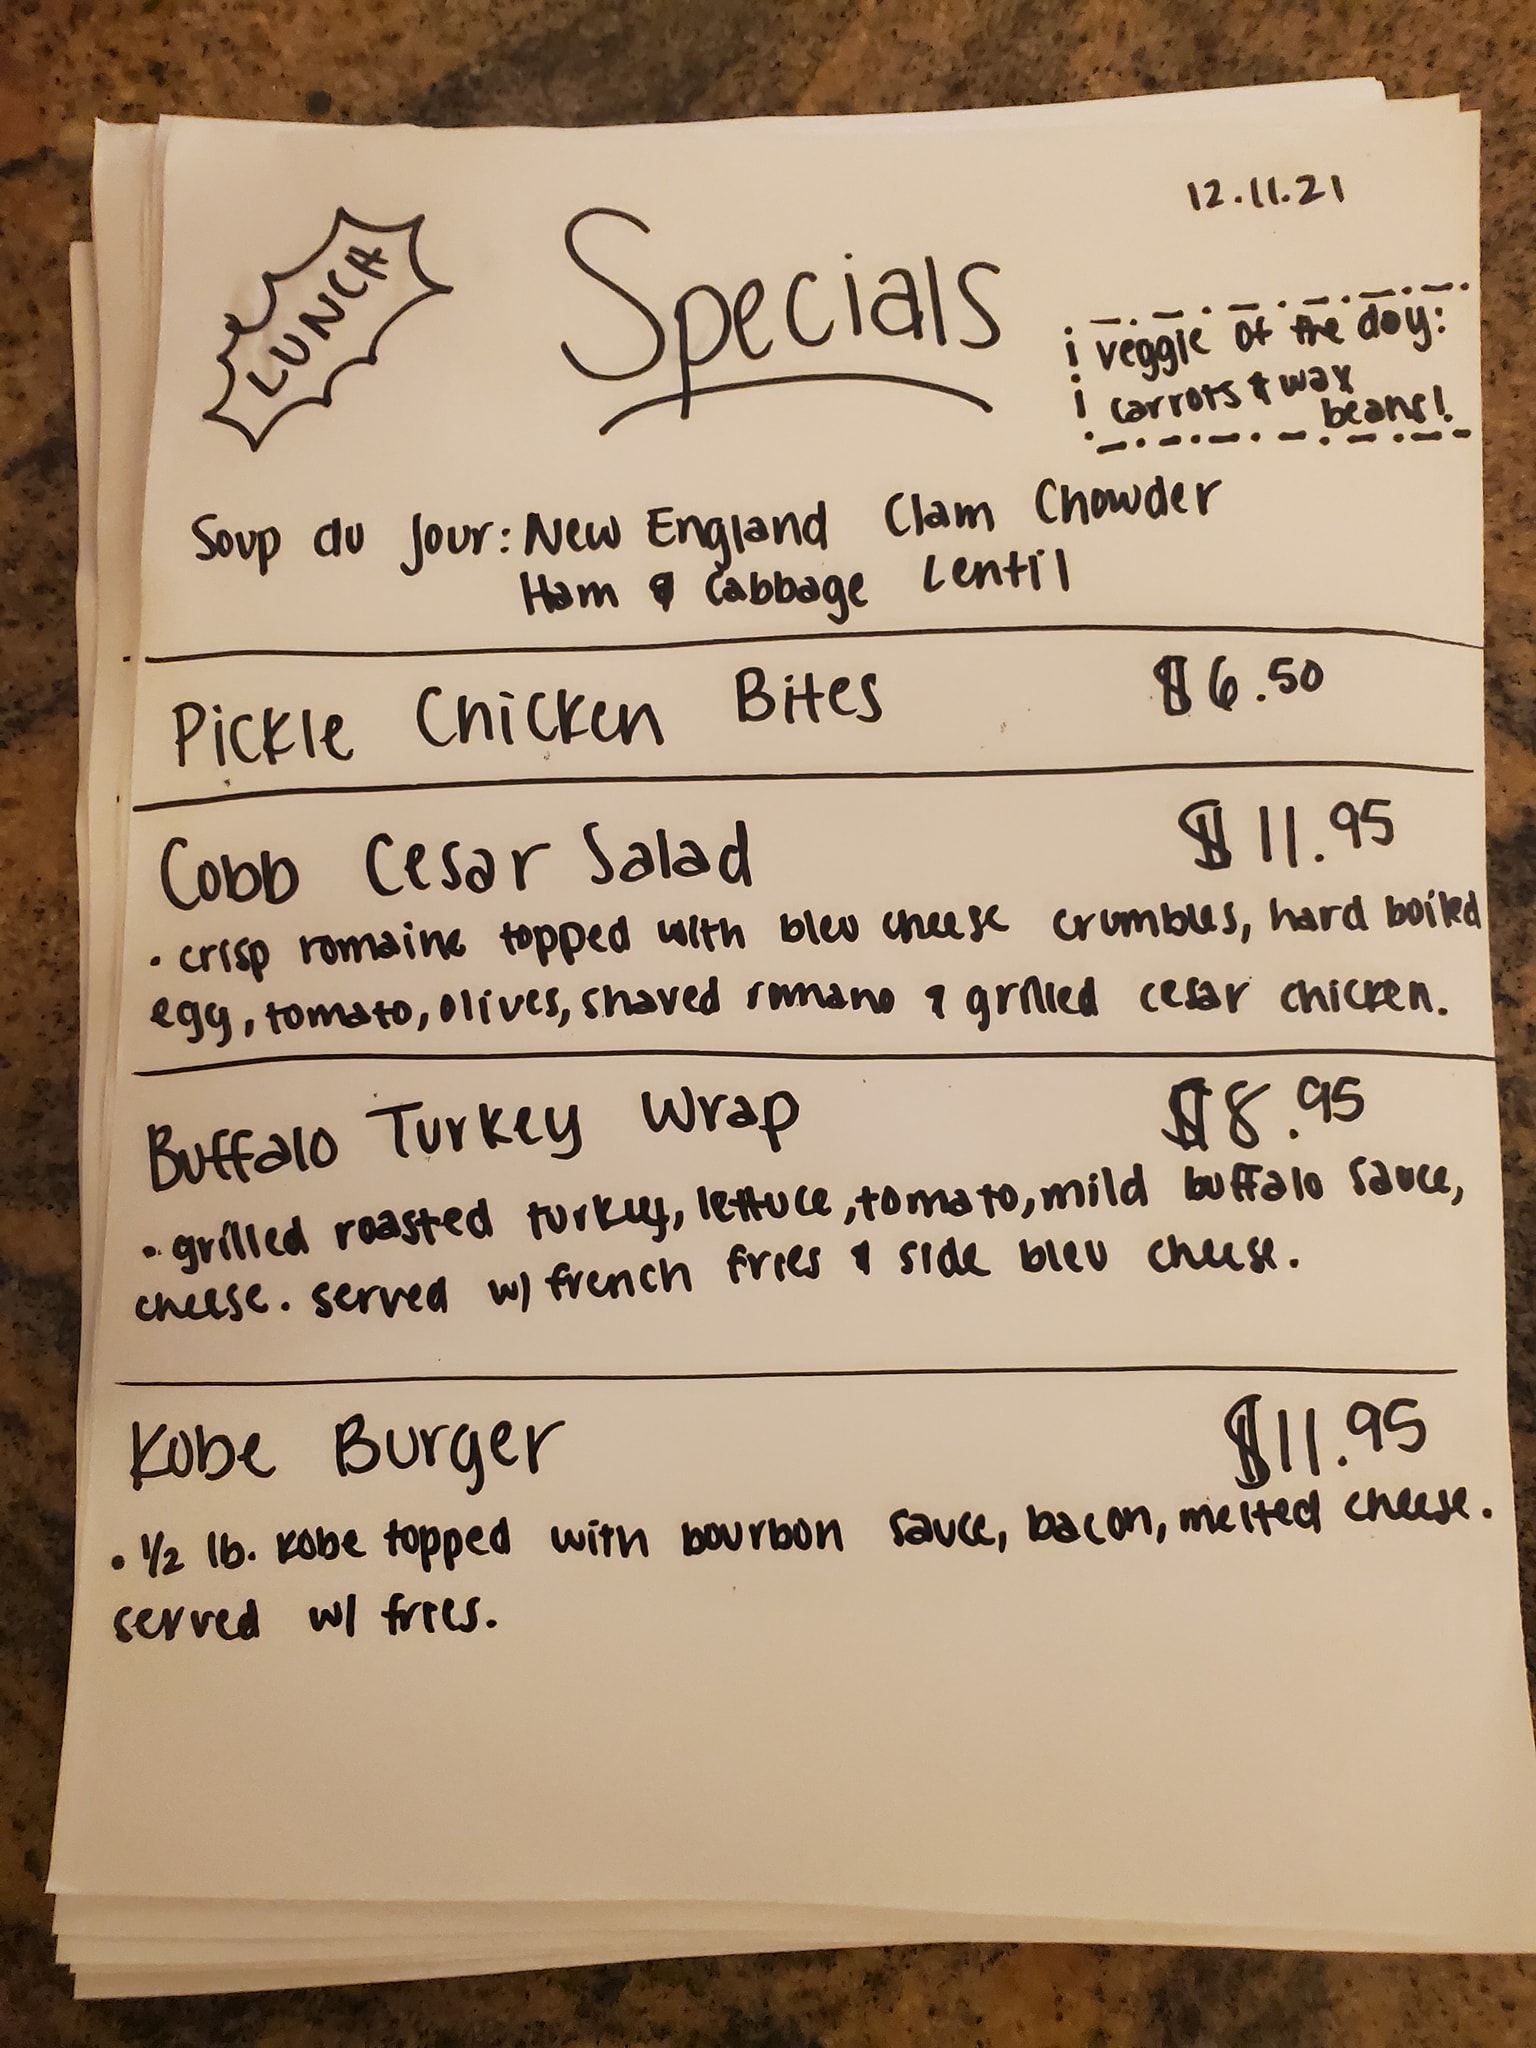 12.11.21
LUNCH
Specials
veggie of the day:
carrots & wax
beans!
Soup du Jour: New England Clam Chowder
Ham & Cabbage Lentil
Pickle Chicken Bites $6.50
Cobb Cesar Salad $11.95
• crisp romaine topped with bleu cheese crumbles, hard boiled
egg, tomato, olives, shaved romano & grilled cesar chicken.
Buffalo Turkey Wrap $8.95
• grilled roasted turkey, lettuce, tomato, mild buffalo sauce,
cheese. served w/ french fries & side bleu cheese.
Kobe Burger $11.95
• 1/2 lb. kobe topped with bourbon sauce, bacon, melted cheese.
served w/ fries.